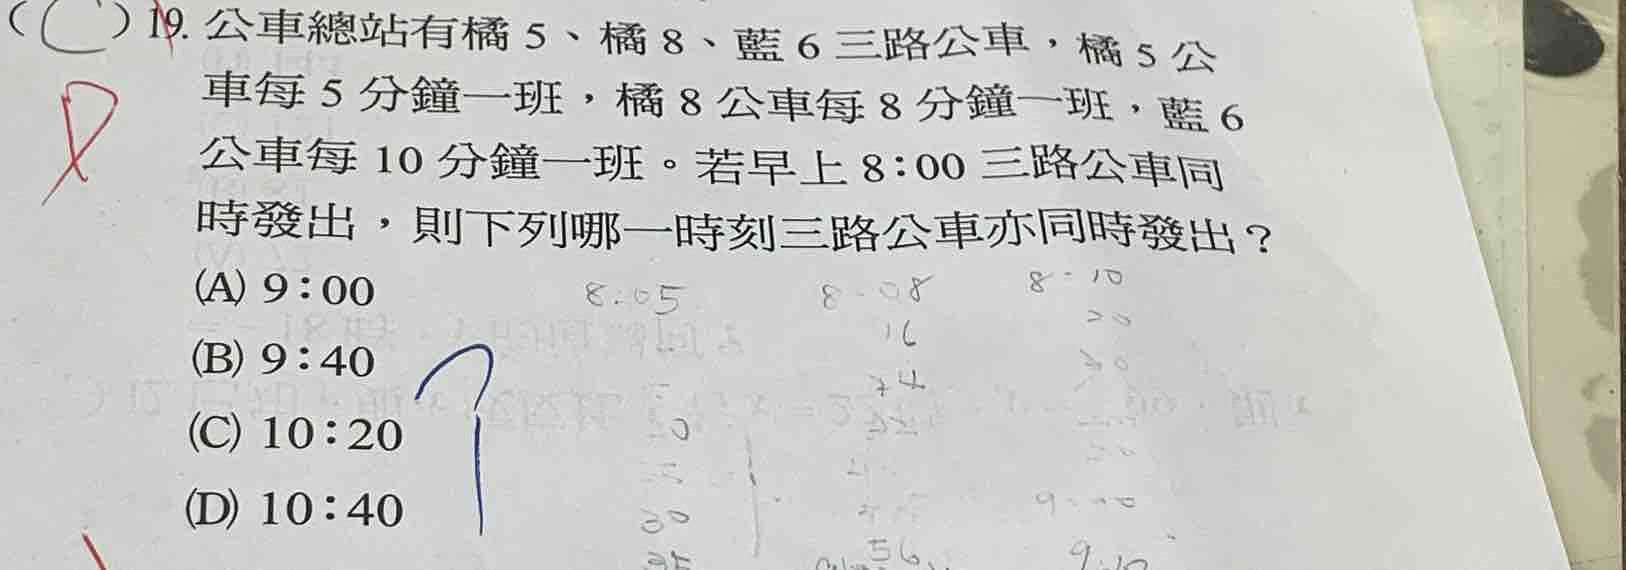 ( C ) 19. 公車總站有橘 5、橘 8、藍 6 三路公車，橘 5 公
車每 5 分鐘一班，橘 8 公車每 8 分鐘一班，藍 6
公車每 10 分鐘一班。若早上 8：00 三路公車同
時發出，則下列哪一時刻三路公車亦同時發出？
(A) 9：00
8:05 8:08 8:10
16 20
(B) 9：40
24
(C) 10：20
(D) 10：40
30
35 56 9:10